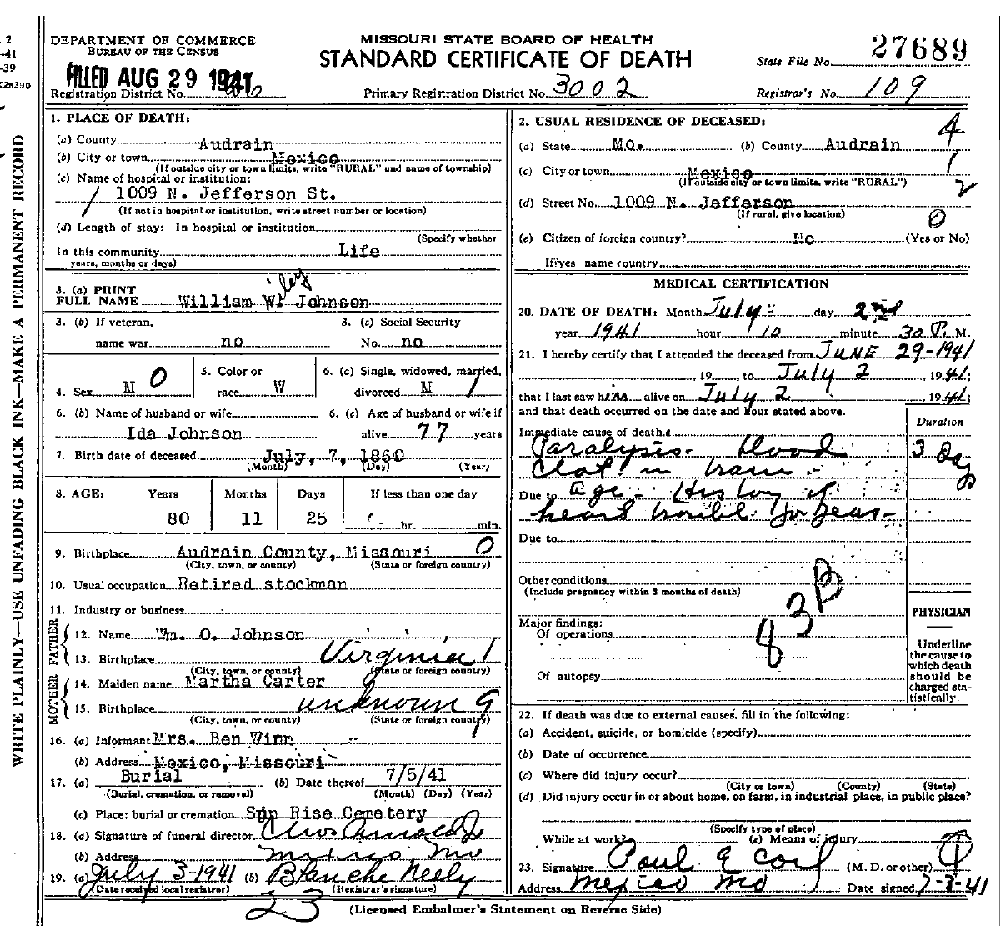 DEPARTMENT OF COMMERCE
BUREAU OF THE CENSUS
MISSOURI STATE BOARD OF HEALTH
STANDARD CERTIFICATE OF DEATH
State File No. 27689
FILED AUG 29 1941
Registration District No.
Primary Registration District No. 3002
Registrar's No. 109
WRITE PLAINLY—USE UNFADING BLACK INK—MAKE A PERMANENT RECORD
1. PLACE OF DEATH:
(a) County Audrain
(b) City or town Mexico
(If outside city or town limits, write "RURAL" and name of township)
(c) Name of hospital or institution:
1009 N. Jefferson St.
(If not in hospital or institution, write street number or location)
(d) Length of stay: In hospital or institution
(Specify whether
In this community Life
years, months or days)
3. (a) PRINT
FULL NAME William Wiley Johnson
3. (b) If veteran,
name war no
3. (c) Social Security
No. no
4. Sex M 0
5. Color or
race W
6. (c) Single, widowed, married,
divorced M 1
6. (b) Name of husband or wife
Ida Johnson
6. (c) Age of husband or wife if
alive 77 years
7. Birth date of deceased July, 7, 1860
(Month) (Day) (Year)
8. AGE: Years Months Days If less than one day
80 11 25 hr. min.
9. Birthplace Audrain County, Missouri 0
(City, town, or county) (State or foreign country)
10. Usual occupation Retired stockman
11. Industry or business
FATHER
12. Name Wm. O. Johnson
13. Birthplace Virginia 1
(City, town, or county) (State or foreign country)
MOTHER
14. Maiden name Martha Carter
15. Birthplace unknown 9
(City, town, or county) (State or foreign country)
16. (a) Informant Mrs. Ben Winn
(b) Address Mexico, Missouri
17. (a) Burial (b) Date thereof 7/5/41
(Burial, cremation, or removal) (Month) (Day) (Year)
(c) Place: burial or cremation Sun Rise Cemetery
18. (a) Signature of funeral director
(b) Address Mexico Mo
19. (a) July 3-1941 (b) Blanche Neely
(Date received local registrar) (Registrar's signature)
23
2. USUAL RESIDENCE OF DECEASED:
(a) State Mo. (b) County Audrain
(c) City or town Mexico
(If outside city or town limits, write "RURAL")
(d) Street No. 1009 N. Jefferson
(If rural, give location)
(e) Citizen of foreign country? No (Yes or No)
If yes name country
4
1
2
0
MEDICAL CERTIFICATION
20. DATE OF DEATH: Month July day 2nd
year 1941 hour 10 minute 30 P.M.
21. I hereby certify that I attended the deceased from JUNE 29-1941
19 to July 2, 1941;
that I last saw him alive on July 2 1941;
and that death occurred on the date and hour stated above.
Duration
Immediate cause of death
Paralysis - blood
clot in brain -
3 Days
Due to age - History of
heart trouble for years -
Due to
Other conditions
(Include pregnancy within 3 months of death)
83B
Major findings:
Of operations
Of autopsy
PHYSICIAN
Underline
the cause to
which death
should be
charged sta-
tistically.
22. If death was due to external causes, fill in the following:
(a) Accident, suicide, or homicide (specify)
(b) Date of occurrence
(c) Where did injury occur?
(City or town) (County) (State)
(d) Did injury occur in or about home, on farm, in industrial place, in public place?
(Specify type of place)
While at work? (e) Means of injury
23. Signature Paul E Coil (M. D. or other)
Address Mexico Mo Date signed 7-3-41
(Licensed Embalmer's Statement on Reverse Side)